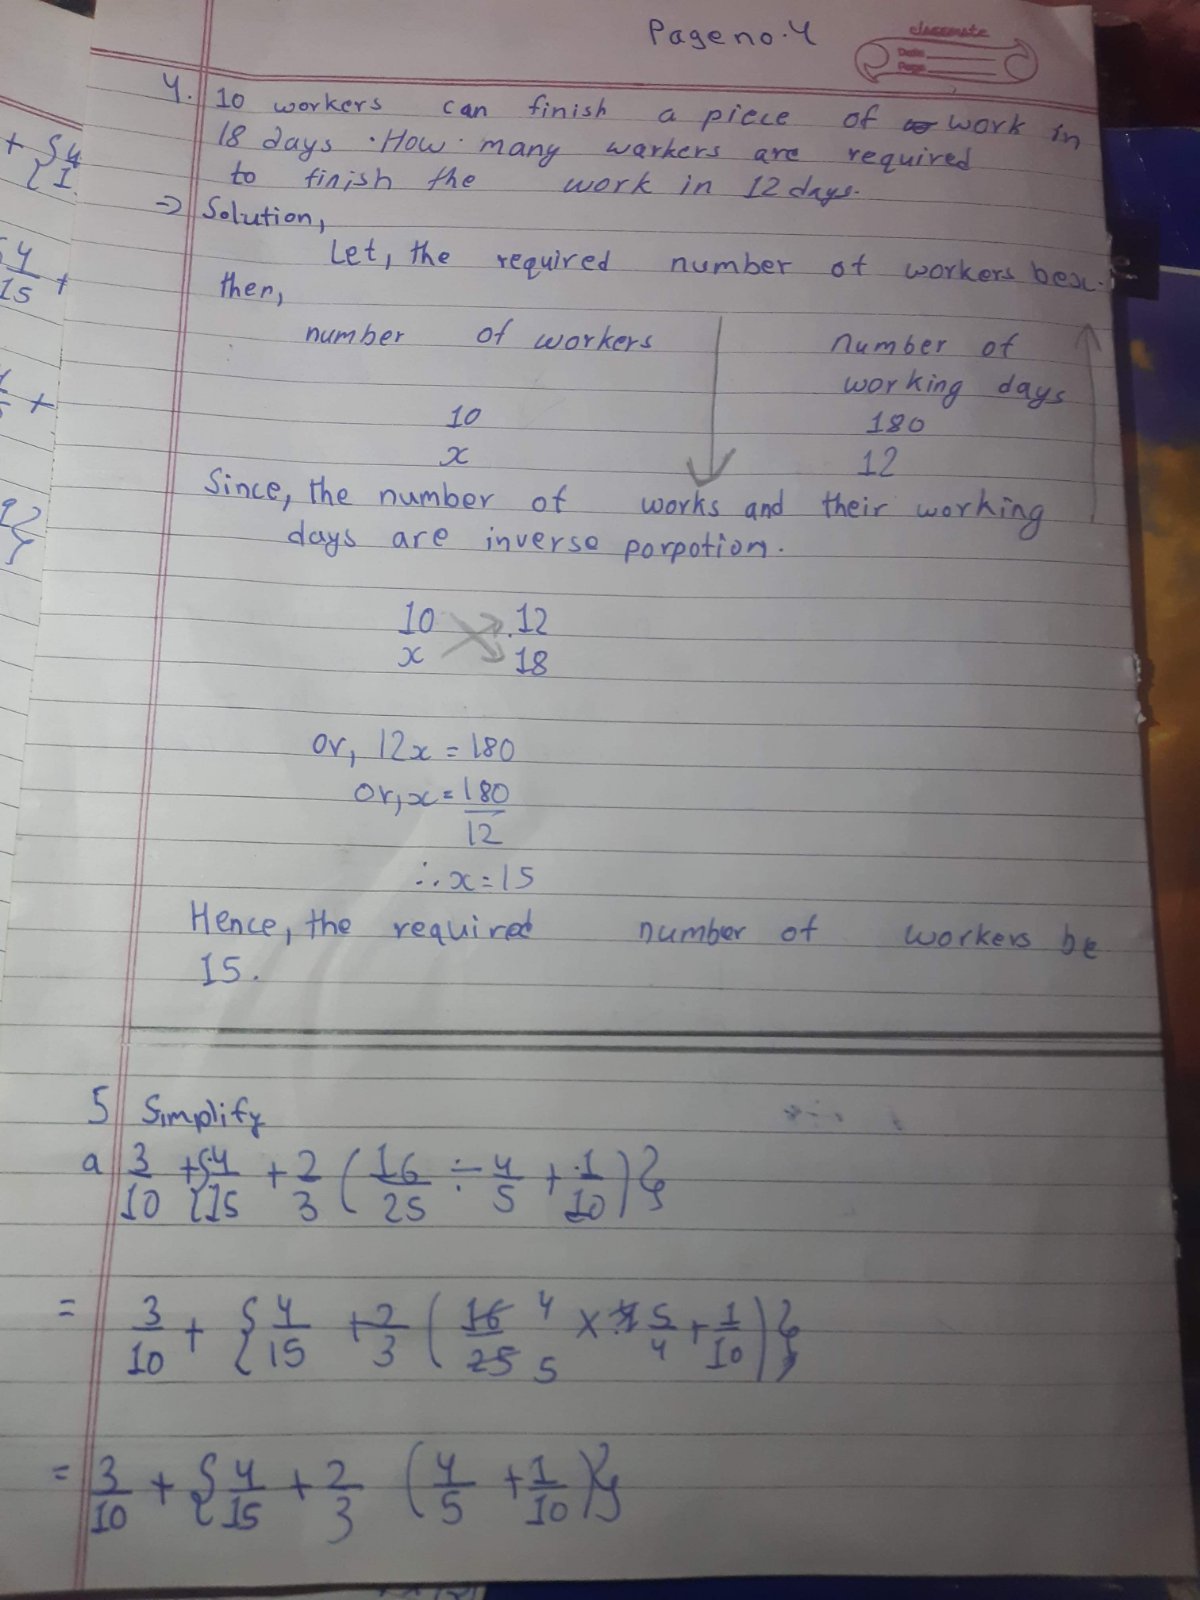 Page no. 4
classmate
Date
Page
4. 10 workers can finish a piece of work in
18 days. How many warkers are required
to finish the work in 12 days.
=> Solution,
Let, the required number of workers be x.
then,
number of workers
number of
working days
10 180
x 12
Since, the number of works and their working
days are inverse porpotion.
10 12
x 18
or, 12x = 180
or, x = 180
12
∴ x = 15
Hence, the required number of workers be
15.
5 Simplify
a 3/10 + {4/15 + 2/3 (16/25 ÷ 4/5 + 1/10)}
= 3/10 + {4/15 + 2/3 (16/25 4/5 × 5/4 + 1/10)}
= 3/10 + {4/15 + 2/3 (4/5 + 1/10)}